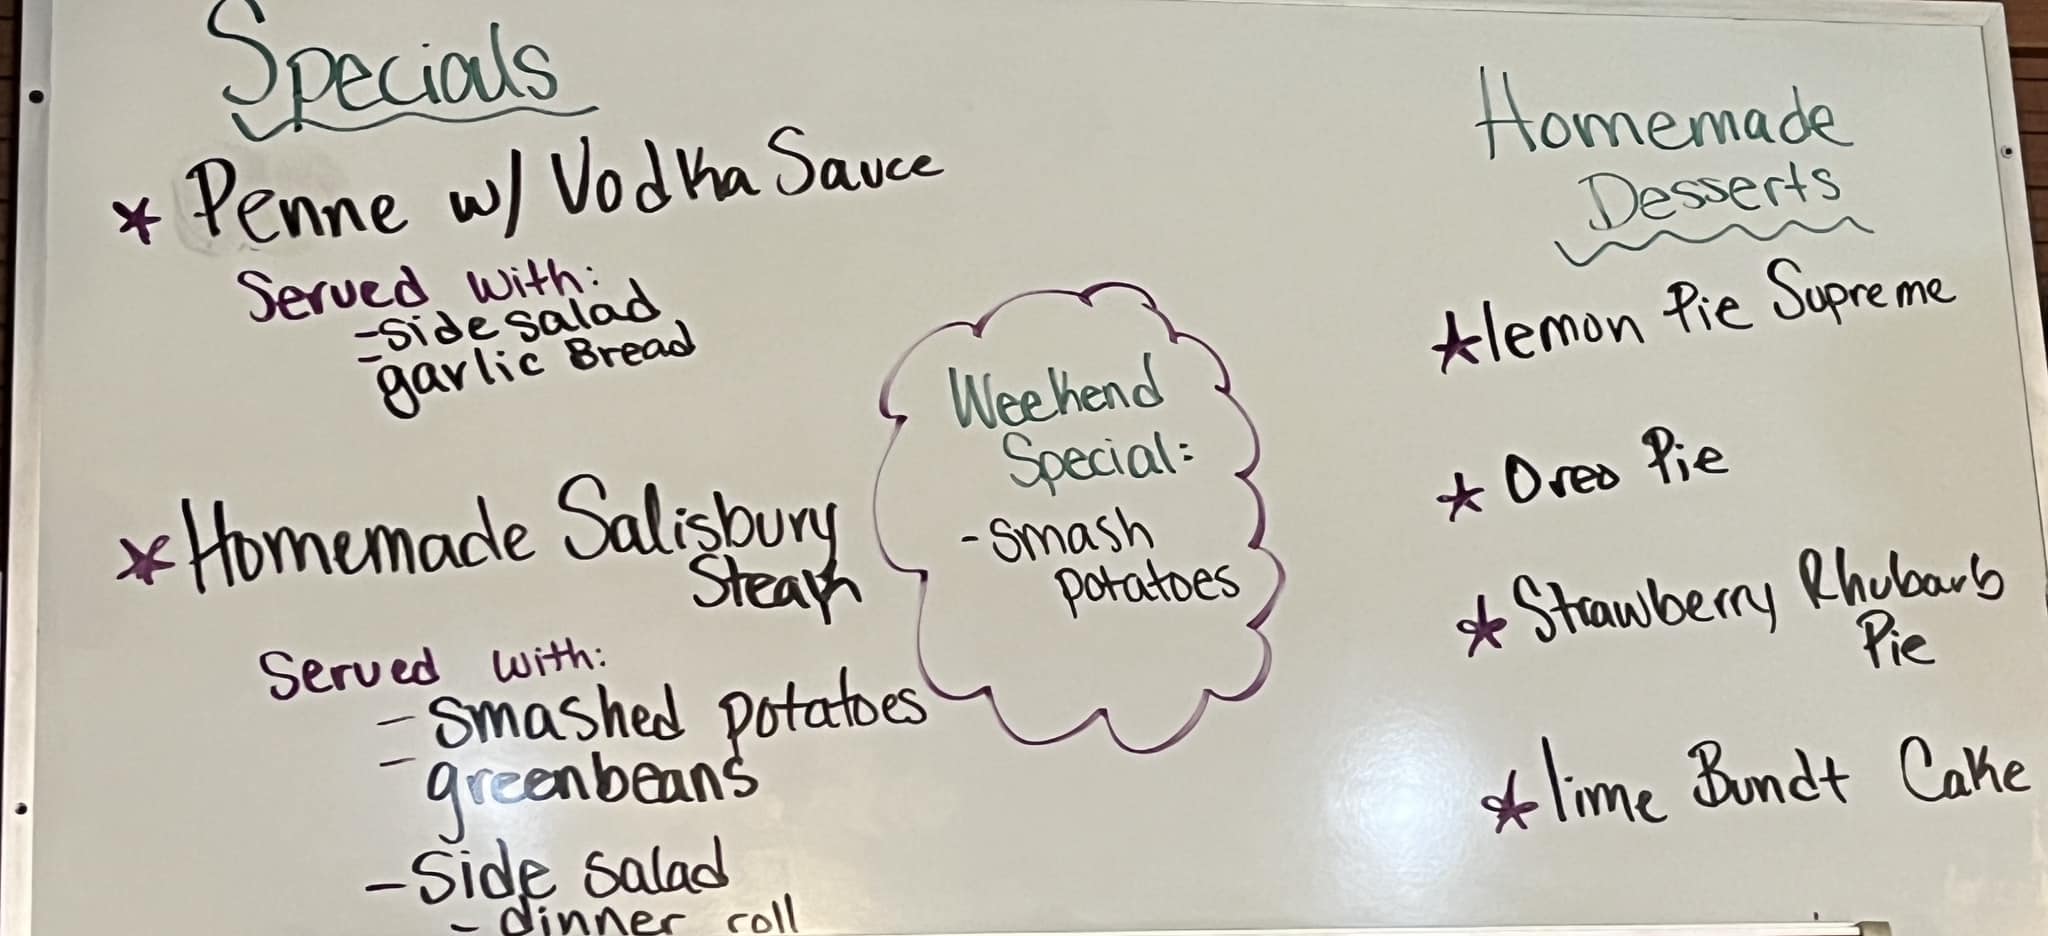 Specials
* Penne w/ Vodka Sauce
Served with:
- side salad
- garlic Bread
* Homemade Salisbury
Steak
Served with:
- smashed potatoes
- greenbeans
- side salad
- dinner roll
Weekend
Special:
- smash
potatoes
Homemade
Desserts
* lemon Pie Supreme
* Oreo Pie
* Strawberry Rhubarb
Pie
* lime Bundt Cake